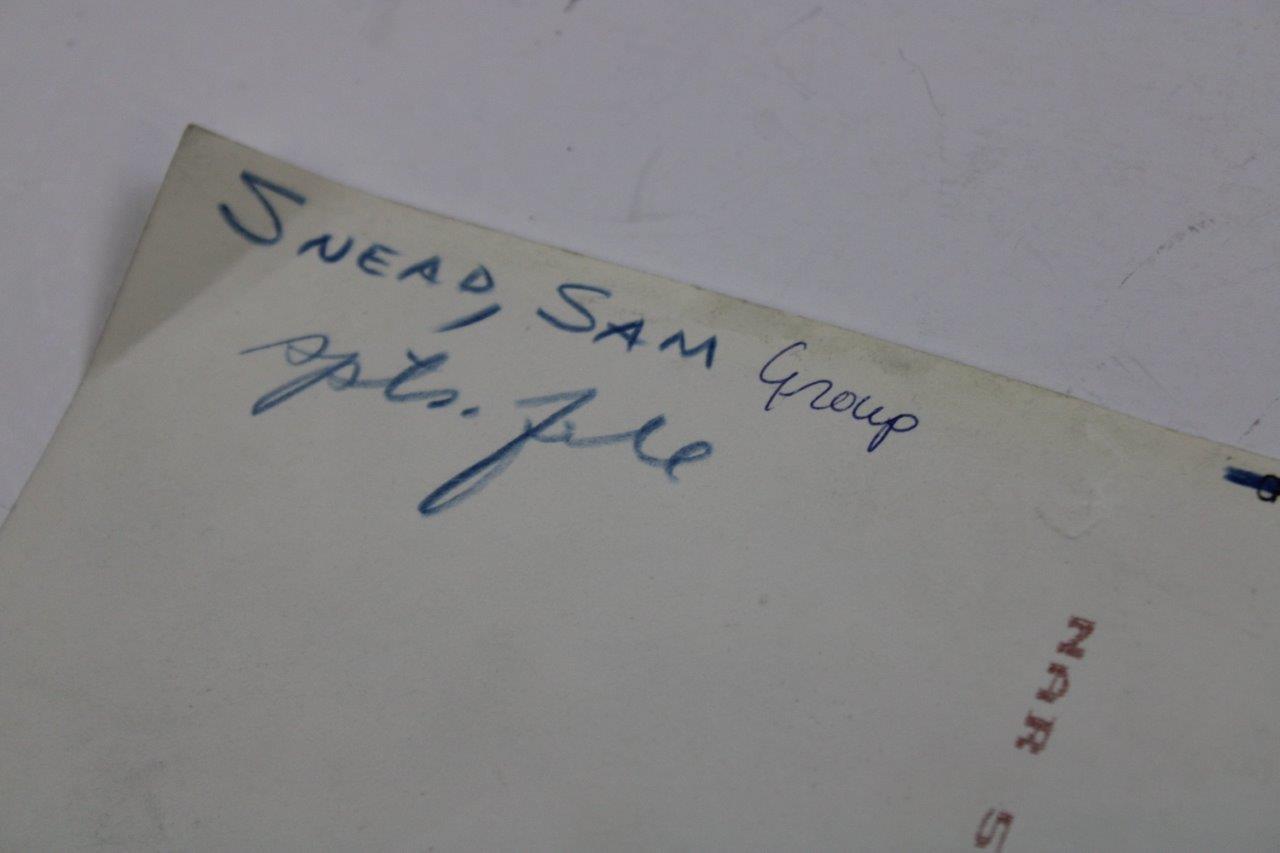 SNEAD, SAM Group
spts. file
NAR 5